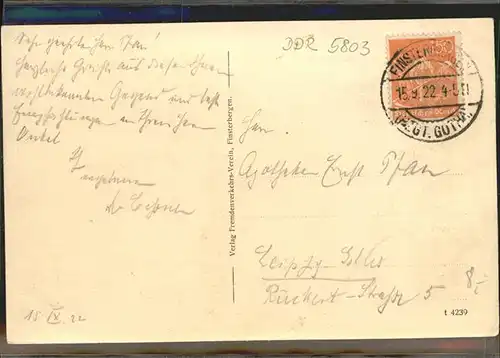 DDR 5803
Sehr geehrter Herr Pfau!
Herzliche Grüße aus dieser Ihnen
wohlbekannten Gegend und beste
Empfehlungen an Ihren Herrn
Onkel
Ihr
ergebener
15 IX. 22
Verlag Fremdenverkehrs-Verein, Finsterbergen.
FINSTERBERGEN
15.9.22. 4-5 N
Herrn
Apotheker Ernst Pfau
Leipzig-Gohlis
Rückert-Straße 5
8,-
t 4239